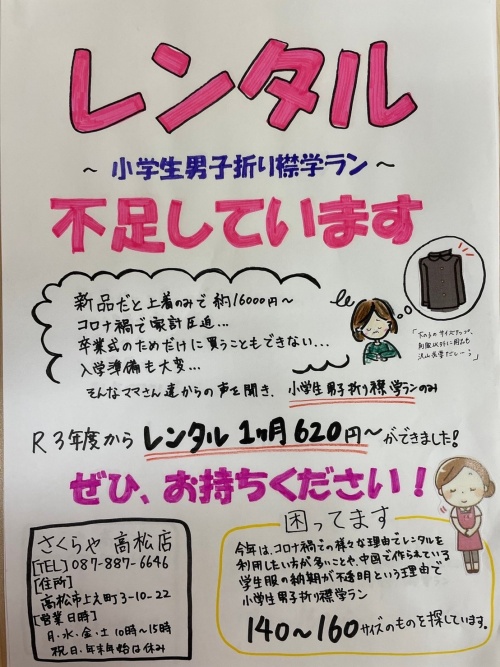 レンタル
~ 小学生男子折り襟学ラン ~
不足しています
新品だと上着のみで約16000円~
コロナ禍で家計圧迫...
卒業式のためだけに買うこともできない...
入学準備も大変...
そんなママさん達からの声を聞き、小学生男子折り襟学ランのみ
R3年度から レンタル 1ヶ月620円~ ができました!
ぜひ、お持ちください!
さくらや 高松店
[TEL] 087-887-6646
[住所]
高松市上之町3-10-22
[営業日時]
月・水・金・土 10時~15時
祝日・年末年始は休み
困ってます
今年は、コロナ禍での様々な理由でレンタルを
利用したい方が多いことや、中国で作られている
学生服の納期が不透明という理由で
小学生男子折り襟学ラン
140~160サイズのものを探しています。